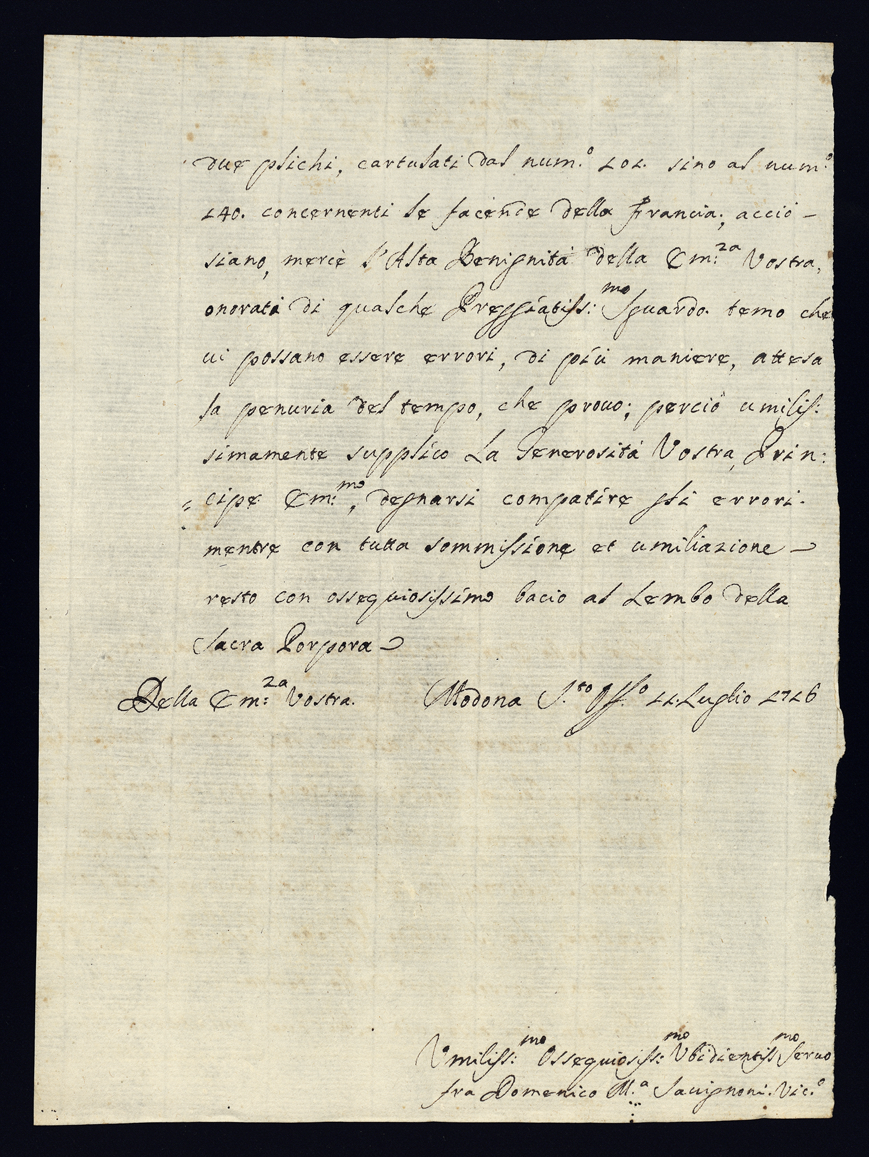 due plichi, cartulati dal num.º 101. sino al num.º
140. concernenti le facende della Francia; acciò –
siano, mercè l'Alta Benignità della Em:za Vostra,
onorati di qualche Preggiatiss:mo Sguardo. temo che
ui possano essere errori, di più maniere, attesa
la penuria del tempo, che prouo; perciò umilis:
simamente supplico La Generosità Vostra, Prin:
= cipe Em:mo, degnarsi compatire gli errori.
mentre con tutta sommissione et umiliazione –
resto con ossequiosissimo bacio al Lembo della
Sacra Porpora –
Della Em:za Vostra. Modona S.to Off.º 11. Luglio 1716
Vmiliss:mo Ossequiosiss:mo Vbidientiss.mo Seruo
fra Domenico M.a Sauignoni. Vic.º